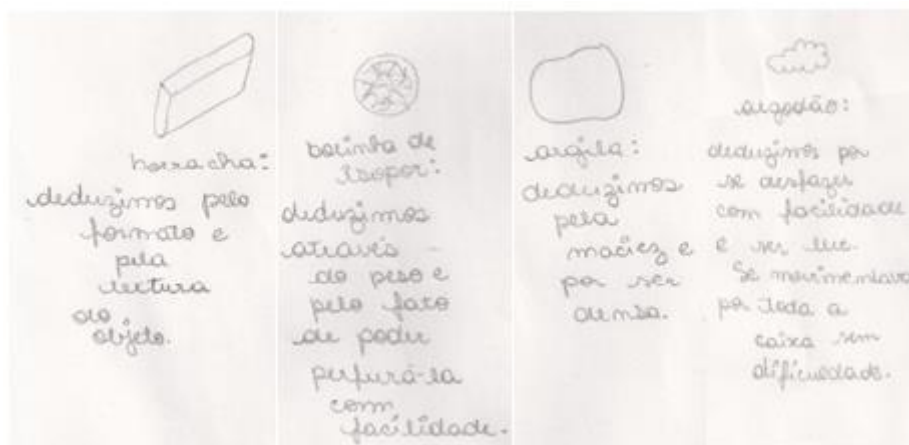 borracha:
deduzimos pelo
formato e
pela
textura
do
objeto.
bolinha de
isopor:
deduzimos
através
do peso e
pelo fato
de poder
perfurá-la
com
facilidade.
argila:
deduzimos
pela
maciez e
por ser
densa.
algodão:
deduzimos por
se desfazer
com facilidade
e ser leve.
Se movimentava
por toda a
caixa sem
dificuldade.